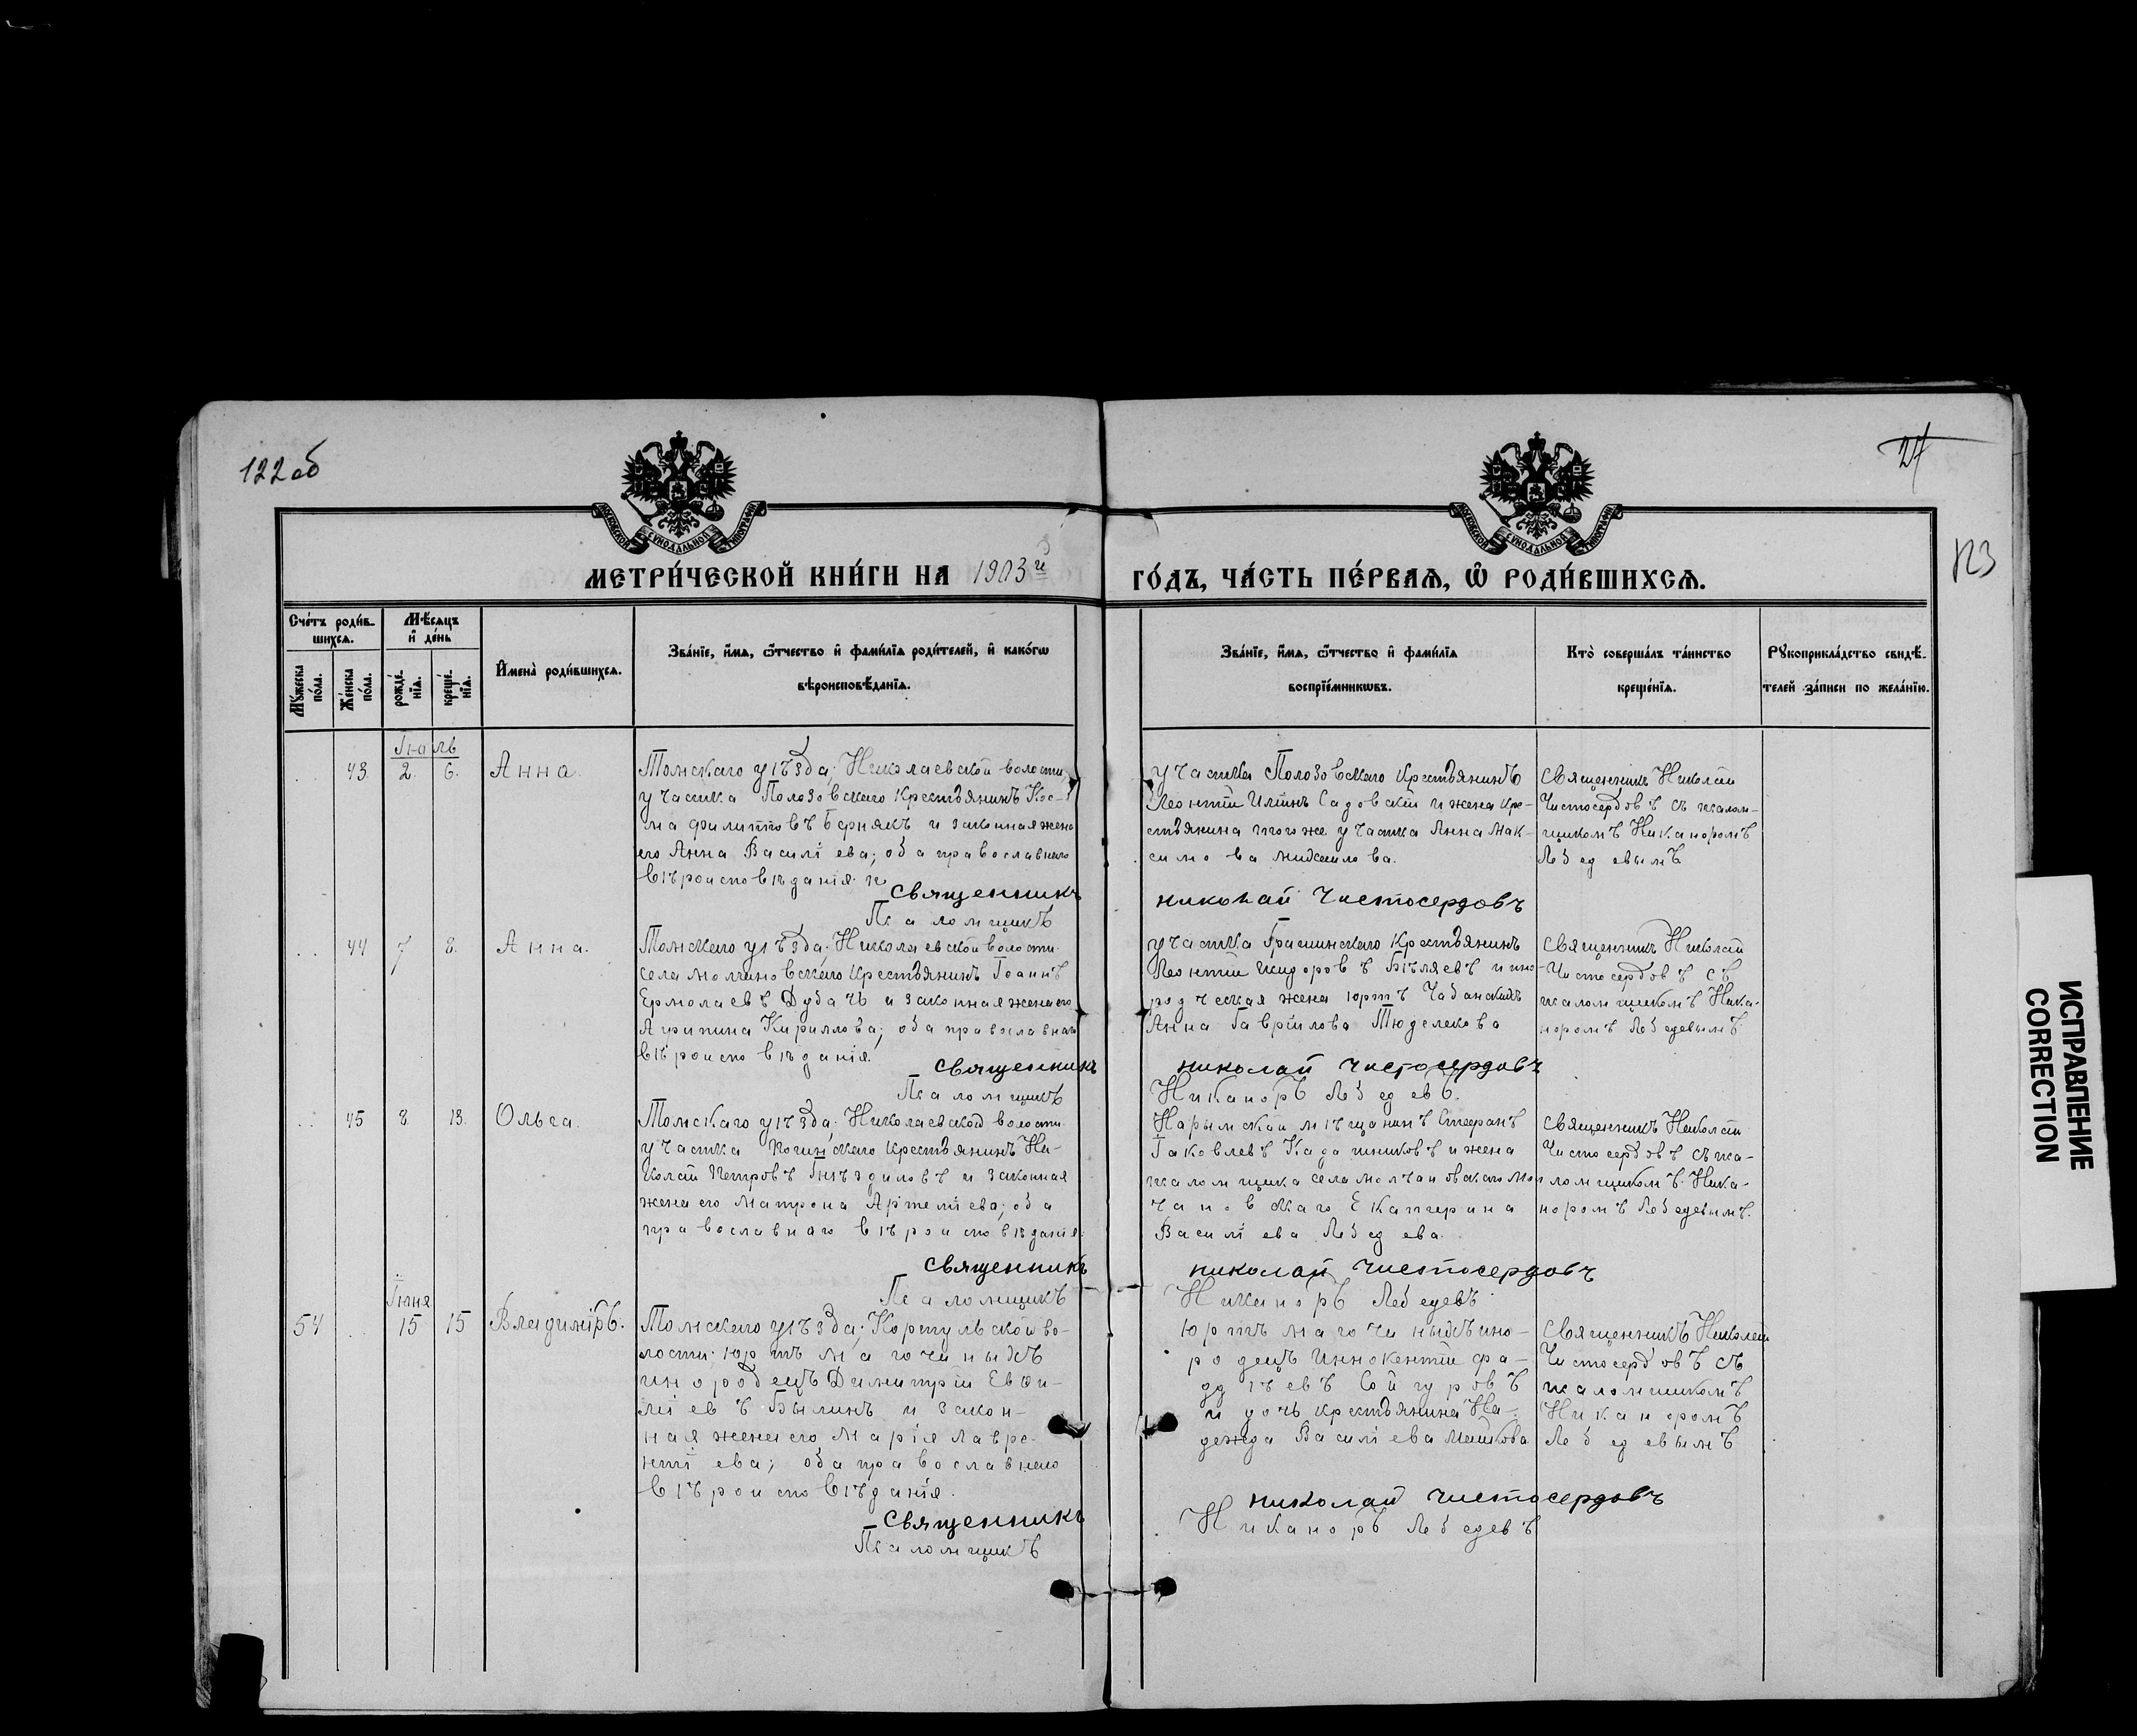 122 об
27
123
МОСКОВСКОЙ СУНОДАЛЬНОЙ ТИПОГРАФІИ
МОСКОВСКОЙ СУНОДАЛЬНОЙ ТИПОГРАФІИ
МЕТРИ́ЧЕСКОЙ КНИ́ГИ НА 1903 й
ГО́ДЪ, ЧА́СТЬ ПЕ́РВАѦ, Ѽ РОДИ́ВШИХСѦ.
Сче́тъ роди́в-
шихсѧ.
Мꙋ́жеска по́ла.
Же́нска по́ла.
Мѣ́сѧцъ
и҆ де́нь
рожде́нїѧ.
креще́нїѧ.
И҆мена̀ роди́вшихсѧ.
Зва́нїе, и҆́мѧ, ѻ҆́тчество и҆ фами́лїѧ роди́телей, и҆ како́гѡ
вѣроисповѣ́данїѧ.
Зва́нїе, и҆́мѧ, ѻ҆́тчество и҆ фами́лїѧ
воспрїе́мникѡвъ.
Кто̀ соверша́лъ та́инство
креще́нїѧ.
Рꙋкоприкла́дство свидѣ́-
телей за́писи по жела́нїю.
Іюль
43. 2. 6. Анна.
Томскаго уѣзда; Николаевской волости,
участка Полозовскаго крестьянинъ Кос-
ма Филипповъ Берникъ и законная жена
его Анна Василіева; оба православнаго
вѣроисповѣданія.
Священникъ
Псаломщикъ
участка Полозовскаго крестьянинъ
Леонтій Ильинъ Садовскій и жена кре-
стьянина того же участка Анна Мак-
симова Михайлова.
Николай Чистосердовъ
Священникъ Николай
Чистосердовъ съ псалом-
щикомъ Никаноромъ
Лебедевымъ
44 7 8. Анна.
Томскаго уѣзда; Николаевской волости.
села Молчановскаго крестьянинъ Іоаннъ
Ермолаевъ Дубачъ и законная жена его
Агрипина Кириллова; оба православнаго
вѣроисповѣданія.
Священникъ
Псаломщикъ
участка Гришинскаго крестьянинъ
Леонтій Исидоровъ Бѣляевъ и ино-
родческая жена юртъ Чабанскихъ
Анна Гавріилова Тюделекова
Николай Чистосердовъ
Никаноръ Лебедевъ.
Священникъ Николай
Чистосердовъ съ
псаломщикомъ Ника-
норомъ Лебедевымъ
45 8. 13. Ольга.
Томскаго уѣзда; Николаевской волости
участка крестьянинъ Ни-
колай Петровъ Гнѣздиловъ и законная
жена его Матрона Артеміева; оба
православнаго вѣроисповѣданія.
Священникъ
Псаломщикъ
Нарымской мѣщанинъ Стефанъ
Іаковлевъ и жена
псаломщика села Молчановскаго Мол-
чановскаго Екатерина
Василіева Лебедева.
Николай Чистосердовъ
Никаноръ Лебедевъ
Священникъ Николай
Чистосердовъ съ пса-
ломщикомъ Ника-
норомъ Лебедевымъ.
Іюня
54 15 15 Владиміръ.
Томскаго уѣзда; Коргульской во-
лости; юртъ Магочиныхъ
инородецъ Димитрій Евфи-
міевъ Былинъ и закон-
ная жена его Марія Лавре-
нтіева; оба православнаго
вѣроисповѣданія.
Священникъ
Псаломщикъ
юртъ Магочиныхъ ино-
родецъ Иннокентій Фа-
ддѣевъ Сойгуровъ
и дочь крестьянина На-
дежда Василіева Машкова
Николай Чистосердовъ
Никаноръ Лебедевъ
Священникъ Николай
Чистосердовъ съ
псаломщикомъ
Никаноромъ
Лебедевымъ
ИСПРАВЛЕНИЕ
CORRECTION